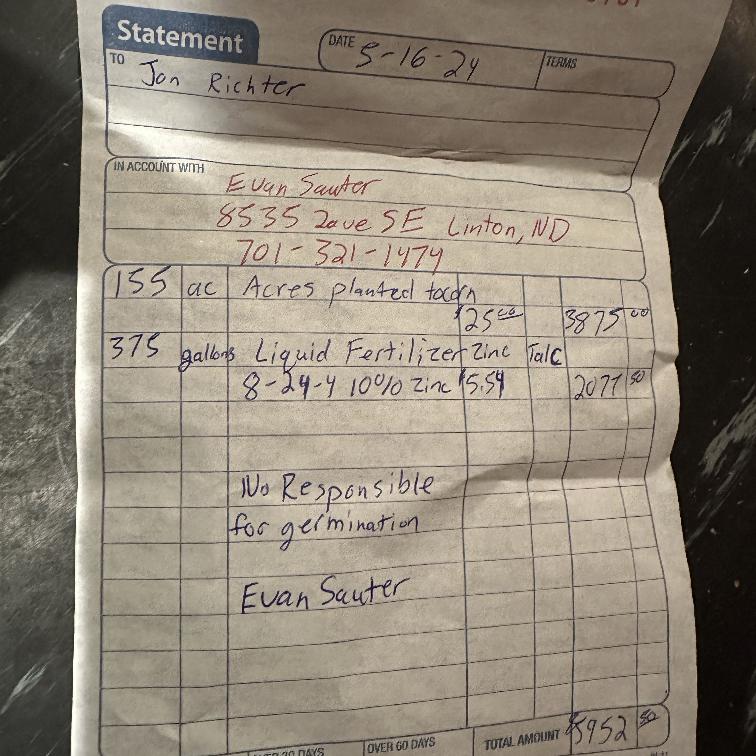 Statement
DATE 5-16-24
TERMS
TO Jon Richter
IN ACCOUNT WITH
Evan Sauter
8535 2ave SE Linton, ND
701-321-1474
155 ac Acres planted to corn
$25.00 3875 00
375 gallons Liquid Fertilizer Zinc Talc
8-24-4 10% Zinc $5.54 2077 50
No Responsible
for germination
Evan Sauter
30 DAYS
OVER 60 DAYS
TOTAL AMOUNT $5952 50